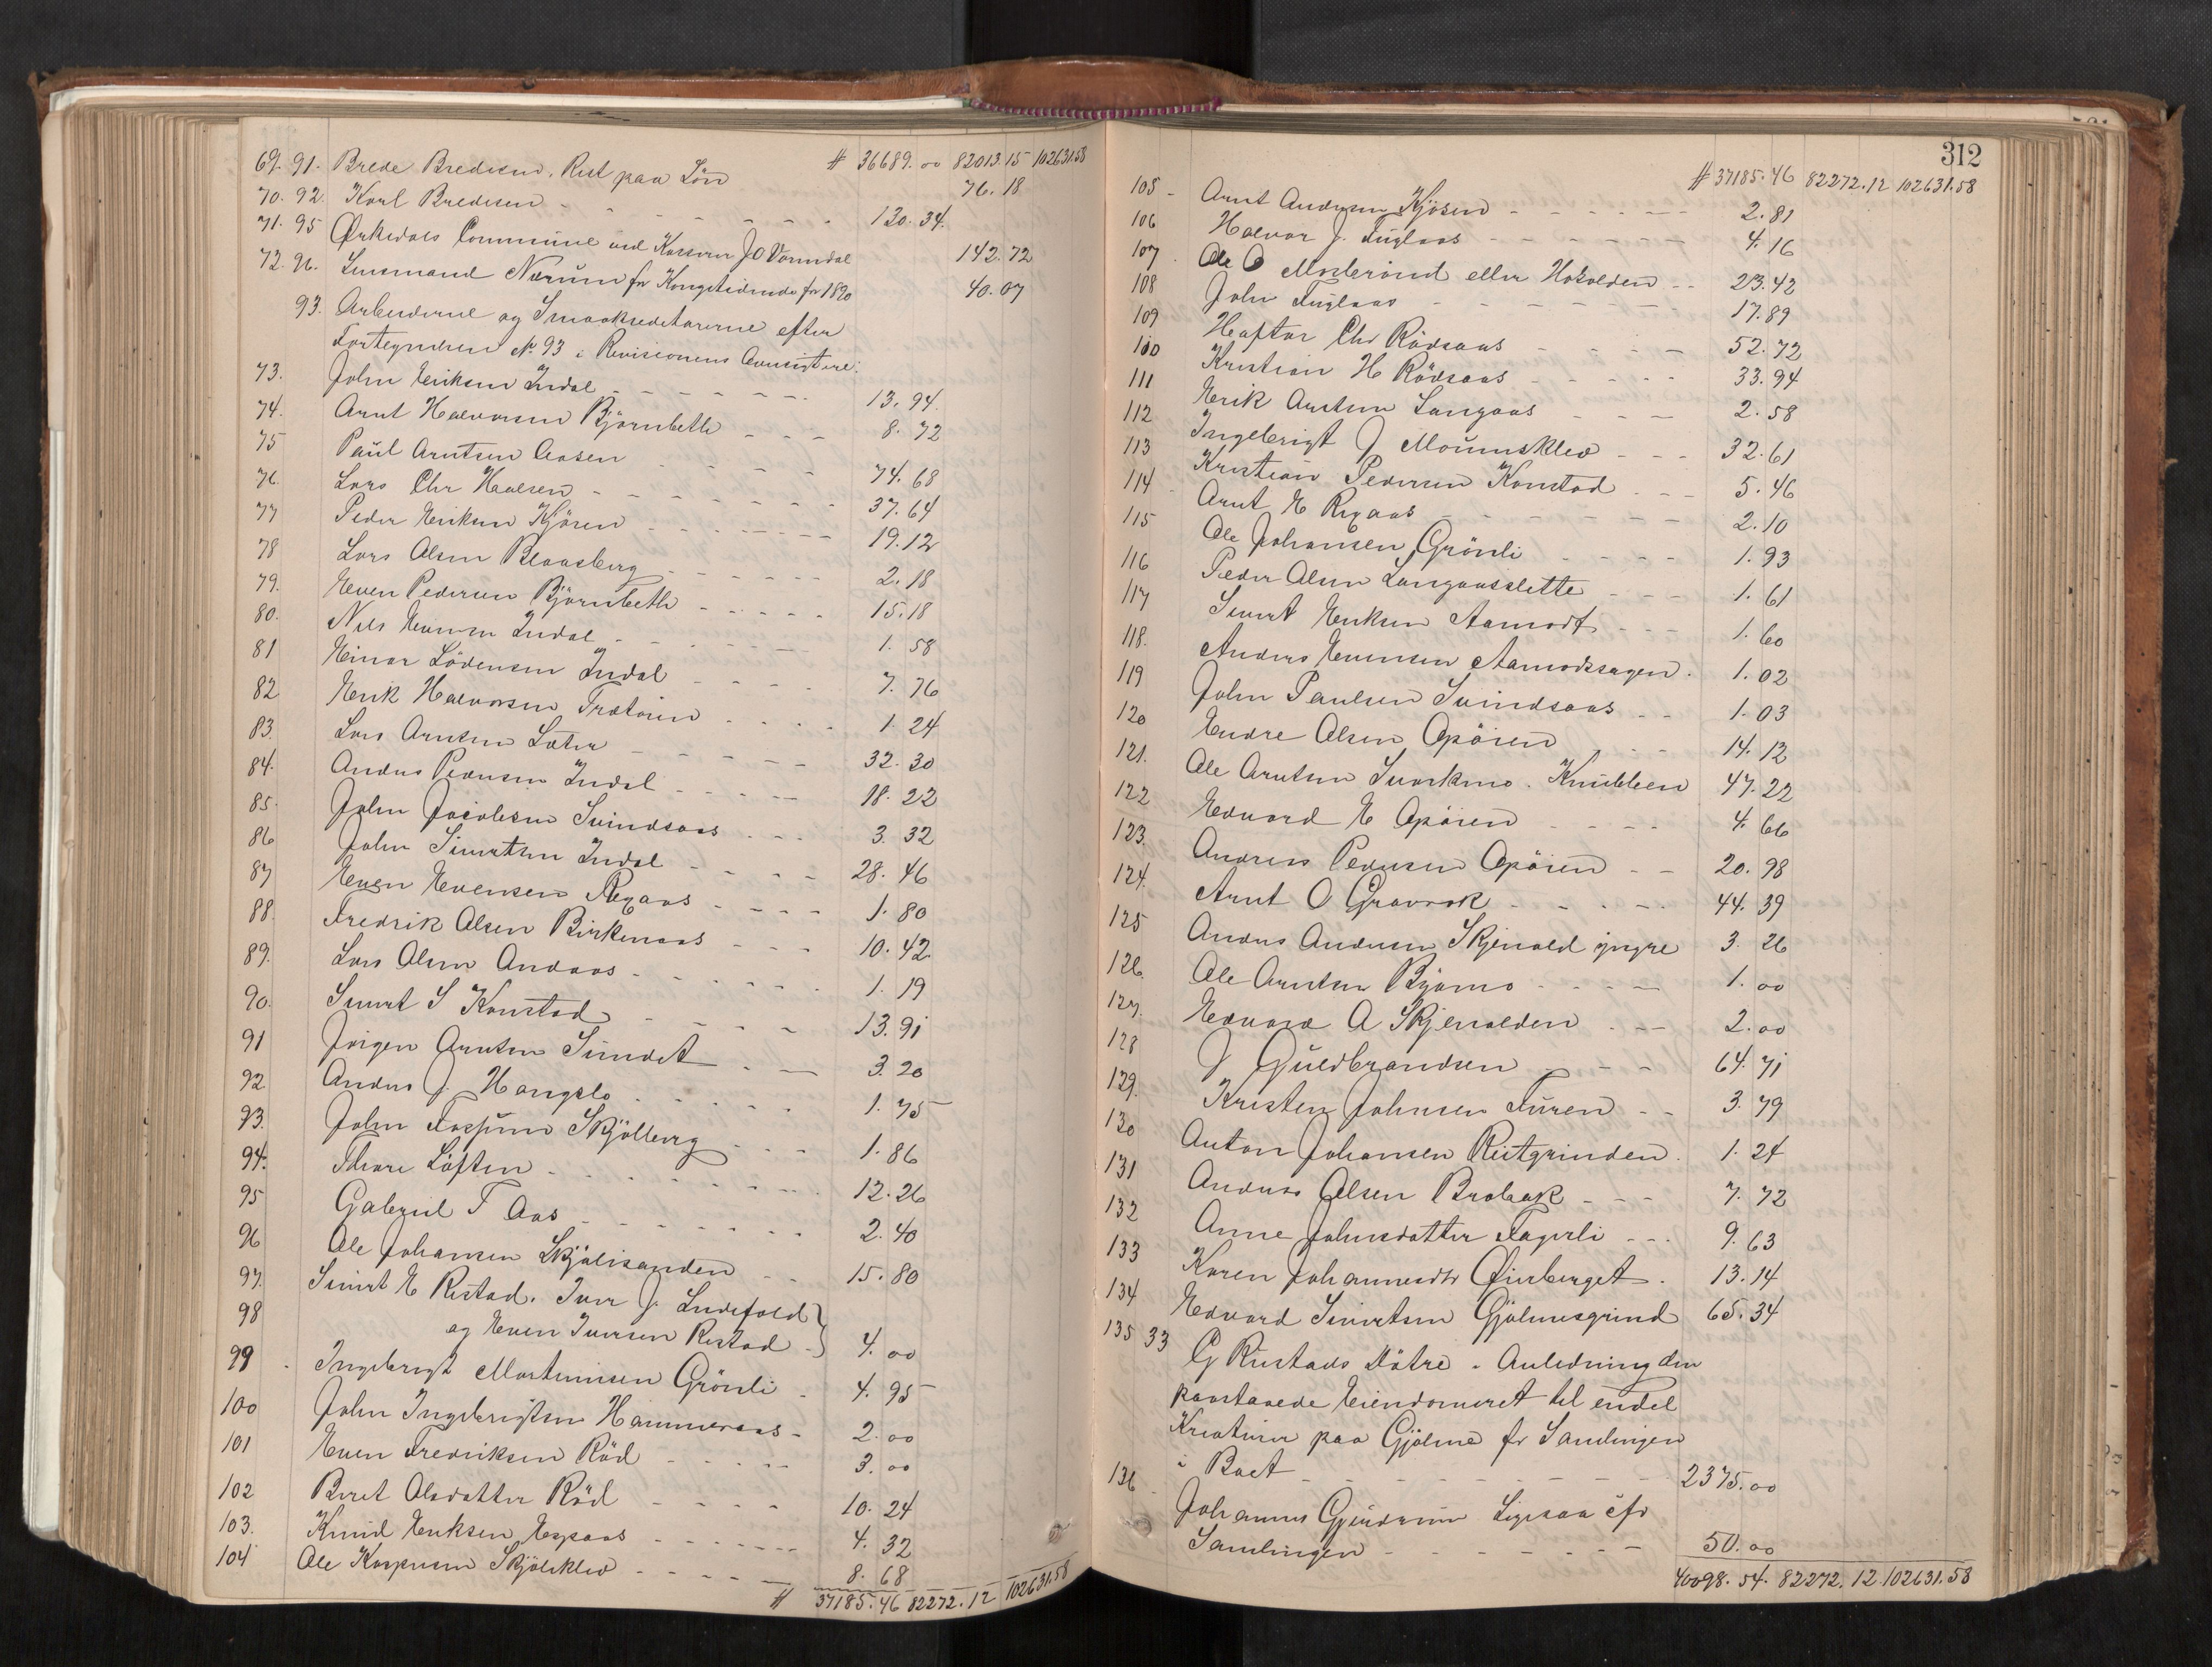 # 36689.00 82013.15 102631.58
69. 91. Brede Bredesen, Rest paa Løn 76.18
70. 92. Karl Bredesen 130.34
71. 95 Ørkedals Commune ved Kasserer J O Vormdal 142.72
72. 96. Lensmand Nærum for Kongetidende for 1890 40.07
93. Arbeiderne og Smaakreditorerne efter
Fortegnelsen No 93 i Revisionens
73. John Eriksen Indal 13.94
74. Arnt Halvorsen Bjørnbetle 8.72
75 Paul Arntsen Aasen 74.68
76. Lars Chr Halsen 37.64
77 Peder Eriksen Kjøren 19.12
78 Lars Olsen Blaasberg 2.18
79. Even Pedersen Bjørnbetle 15.18
80. Nils Evensen Indal 1.58
81 Einar Lødensen Indal 7.76
82 Erik Halvorsen Trætøien 1.24
83. Lars Arntsen Sæter 32.30
84. Anders Pedersen Indal 18.22
85. John Jacobsen Svindsaas 3.32
86 John Sivertsen Indal 28.46
87 Even Evensen Rexaas 1.80
88. Fredrik Olsen Birkenaas 10.42
89. Lars Olsen Andaas 1.19
90. Sivert S Konstad 13.91
91 Jørgen Arntsen Sundet 3.20
92. Anders J. Hangslo 1.75
93. John Skjølberg 1.86
94. Thore Løften 12.26
95 Gabriel T Aas 2.40
96 Ole Johansen Skjølisanden 15.80
97. Sivert E Ristad, Iver J. Lndefold
98 og Even Iversen Ristad 4.00
99 Ingebrigt Mortensen Grønli 4.95
100 John Ingebrigtsen Hammeraas 2.00
101 Even Fredriksen Rød 3.00
102 Beret Olsdatter Rød 10.24
103. Knud Eriksen Espaas 4.32
104 Ole Kaspersen Skjølsklev 8.68
# 37185.46 82272.12 102631.58
312
# 37185.46 82272.12 102631.58
105 Arnt Andersen Kjøsen 2.81
106 Halvor J. Fuglaas 4.16
107 Ole O Mosbrønd eller Hokolden 23.42
108 John Fuglaas 17.89
109 Haftor Chr Rødsaas 52.72
110 Kristian H Rødsaas 33.94
111 Erik Arntsen Langaas 2.58
112 Ingebrigt J Moumsklev 32.61
113 Kristian Pedersen Konstad 5.46
114 Arnt E Rexaas 2.10
115 Ole Johansen Grønli 1.93
116 Peder Olsen Langaasslette 1.61
117 Sivert Eriksen Aamodt 1.60
118. Anders Evensen Aamodssagen 1.02
119 John Paulsen Svindsaas 1.03
120 Endre Olsen Opøien 14.12
121. Ole Arntsen Svorkmo Knubben 47.22
122 Edvard E Opøien 4.66
123. Andreas Pedersen Opøien 20.98
124. Arnt O Gravrok 44.39
125 Anders Andersen Skjenald yngre 3.26
126. Ole Arntsen Bjømo 1.00
127. Edvard A Skjenalden 2.00
128 J Guldbrandsen 64.71
129. Kristen Johnsen Furen 3.79
130 Anton Johansen Ristgrinden 1.24
131 Anders Olsen Brobak 7.72
132 Anne Johnsdatter Fagerli 9.63
133 Karen Johannesdtr Øiesberget 13.14
134 Edvard Sivertsen Gjølmesgrind 65.34
135 33 G Rustads Døtre i Anledning den
paastaaede Eiendomsret til endel
Kreaturer paa Gjølme før Samlingen
i Boet 2375.00
136 Johannes Gjendrum Ligesaa før
Samlingen 50.00
40098.54 82272.12 102631.58